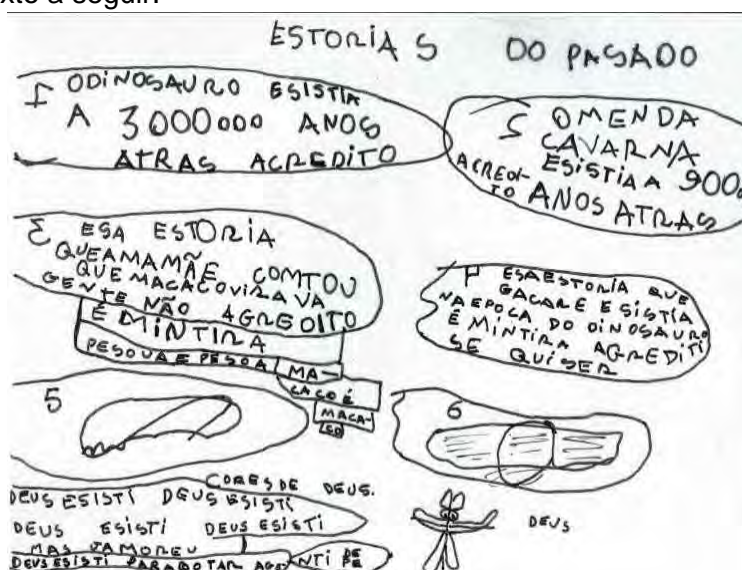 xto a seguir.
ESTORIAS DO PASADO
1 ODINOSAURO ESISTIA
A 3000000 ANOS
ATRAS ACREDITO
OMENDA
CAVARNA
ESISTIA A 900
ACREDI-
TO ANOS ATRAS
ESA ESTORIA
QUEAMAMÃE COMTOU
QUE MACACOVIRAVA
GENTE NÃO AGREDITO
É MINTIRA
PESOUA E PESOA MA-
CACO É
MACA-
CO
ESAESTORIA QUE
GACARE ESISTIA
NAEPOCA DO DINOSAURO
É MINTIRA AGREDITI
SE QUISER
5
6
CORES DE DEUS.
DEUS ESISTI DEUS ESISTI
DEUS ESISTI DEUS ESISTI
MAS JAMOREU
DEUS ESISTI PARABOTAR NTI DE
PE
DEUS